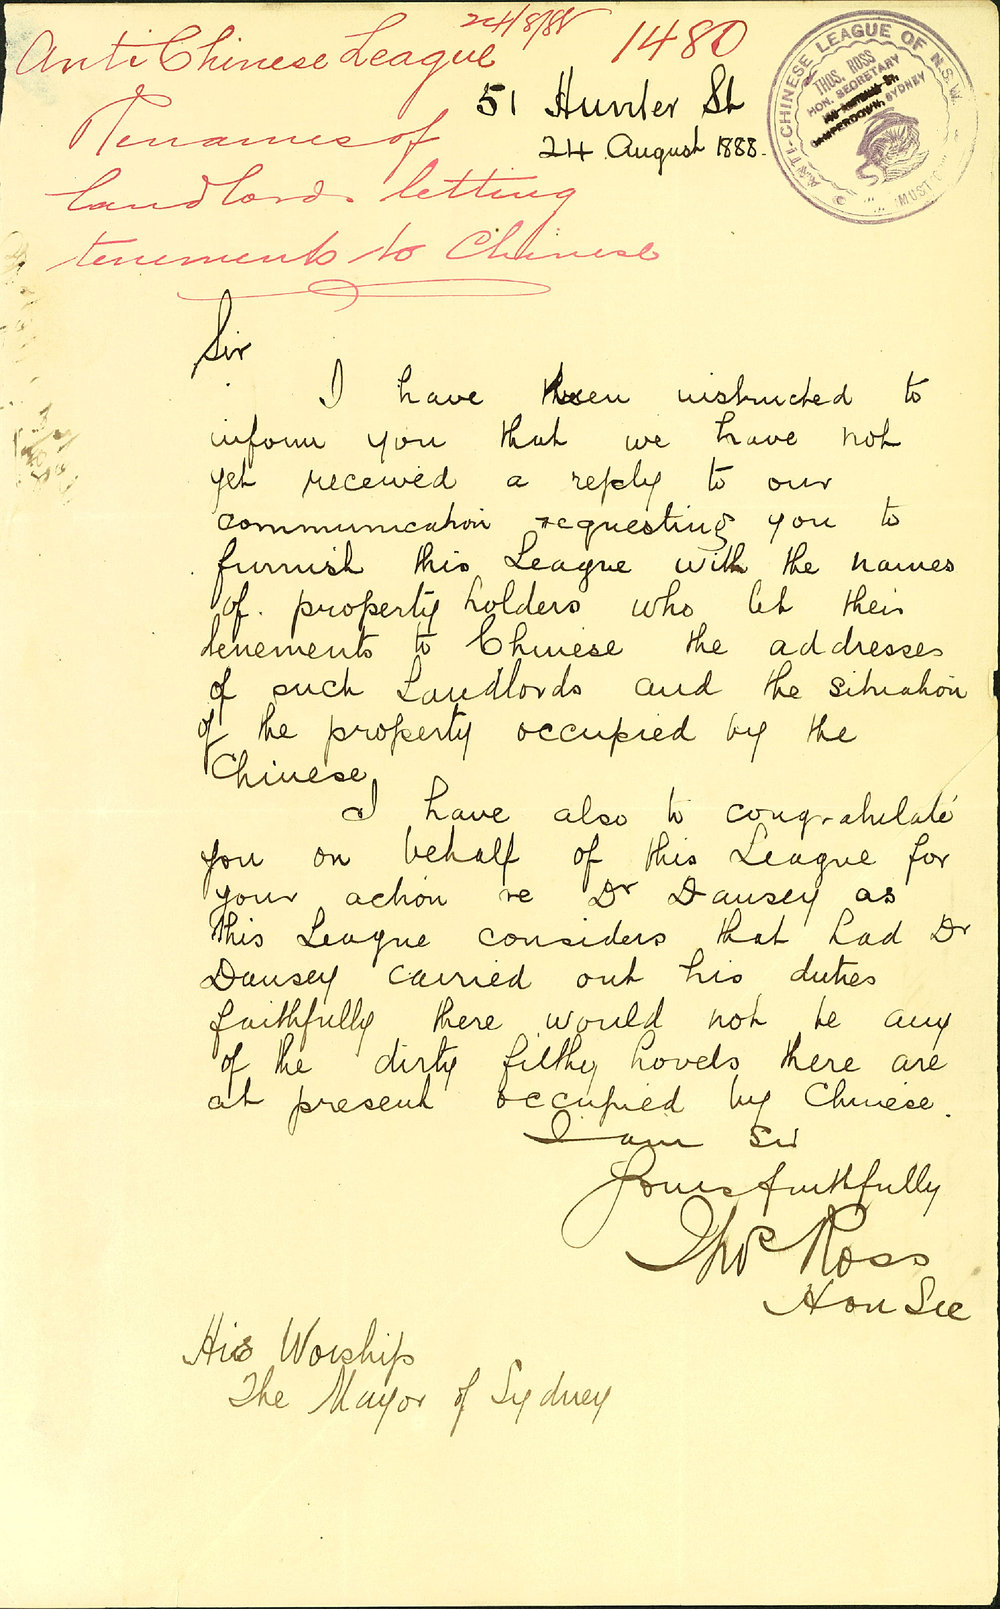 24/8/88
1480
Anti Chinese League
51 Hunter St
Re names of
24 August 1888.
landlords letting
tenements to Chinese
ANTI-CHINESE LEAGUE OF N.S.W.
THOS. ROSS
HON. SECRETARY
CAMPERDOWN, SYDNEY
MUST
Sir
I have been instructed to
inform you that we have not
yet received a reply to our
communication requesting you to
furnish this League with the names
of property holders who let their
tenements to Chinese the addresses
of such Landlords and the situation
of the property occupied by the
Chinese
I have also to congratulate
you on behalf of this League for
your action re Dr Dansey as
this League considers that had Dr
Dansey carried out his duties
faithfully there would not be any
of the dirty filthy hovels there are
at present occupied by Chinese.
I am Sir
Yours faithfully
Thos Ross
Hon Sec
His Worship
The Mayor of Sydney